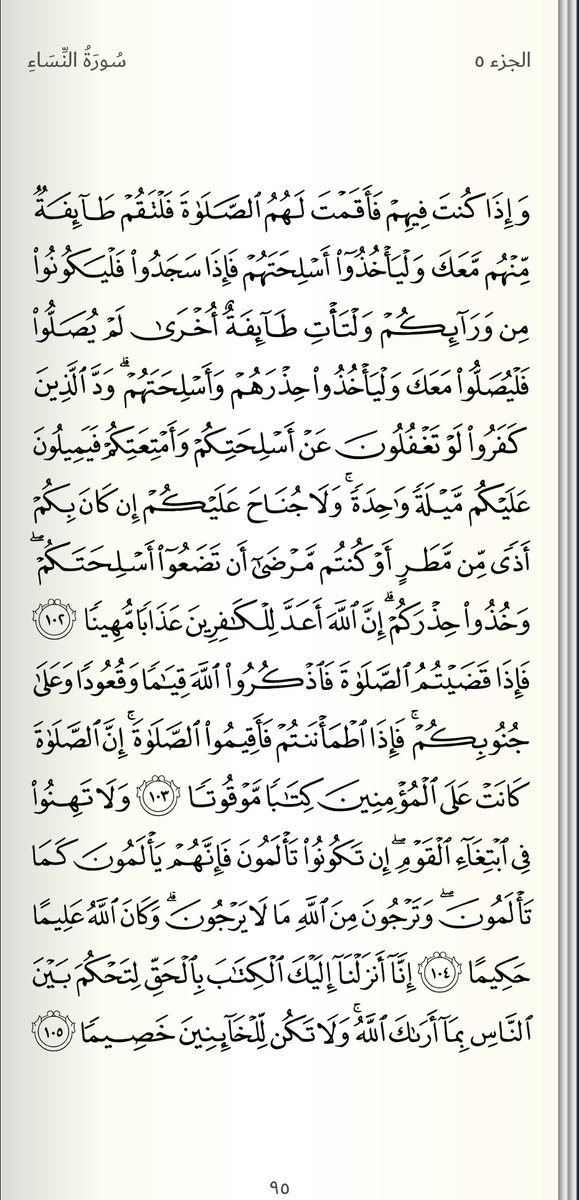 الجزء ٥
سُورَةُ النِّسَاءِ
وَإِذَا كُنتَ فِيهِمْ فَأَقَمْتَ لَهُمُ ٱلصَّلَوٰةَ فَلْتَقُمْ طَآئِفَةٌ
مِّنْهُم مَّعَكَ وَلْيَأْخُذُوٓا۟ أَسْلِحَتَهُمْ فَإِذَا سَجَدُوا۟ فَلْيَكُونُوا۟
مِن وَرَآئِكُمْ وَلْتَأْتِ طَآئِفَةٌ أُخْرَىٰ لَمْ يُصَلُّوا۟
فَلْيُصَلُّوا۟ مَعَكَ وَلْيَأْخُذُوا۟ حِذْرَهُمْ وَأَسْلِحَتَهُمْ ۗ وَدَّ ٱلَّذِينَ
كَفَرُوا۟ لَوْ تَغْفُلُونَ عَنْ أَسْلِحَتِكُمْ وَأَمْتِعَتِكُمْ فَيَمِيلُونَ
عَلَيْكُم مَّيْلَةً وَٰحِدَةً ۚ وَلَا جُنَاحَ عَلَيْكُمْ إِن كَانَ بِكُمْ
أَذًى مِّن مَّطَرٍ أَوْ كُنتُم مَّرْضَىٰٓ أَن تَضَعُوٓا۟ أَسْلِحَتَكُمْ ۖ
وَخُذُوا۟ حِذْرَكُمْ ۗ إِنَّ ٱللَّهَ أَعَدَّ لِلْكَٰفِرِينَ عَذَابًا مُّهِينًا ١٠٢
فَإِذَا قَضَيْتُمُ ٱلصَّلَوٰةَ فَٱذْكُرُوا۟ ٱللَّهَ قِيَٰمًا وَقُعُودًا وَعَلَىٰ
جُنُوبِكُمْ ۚ فَإِذَا ٱطْمَأْنَنتُمْ فَأَقِيمُوا۟ ٱلصَّلَوٰةَ ۚ إِنَّ ٱلصَّلَوٰةَ
كَانَتْ عَلَى ٱلْمُؤْمِنِينَ كِتَٰبًا مَّوْقُوتًا ١٠٣ وَلَا تَهِنُوا۟
فِى ٱبْتِغَآءِ ٱلْقَوْمِ ۖ إِن تَكُونُوا۟ تَأْلَمُونَ فَإِنَّهُمْ يَأْلَمُونَ كَمَا
تَأْلَمُونَ ۖ وَتَرْجُونَ مِنَ ٱللَّهِ مَا لَا يَرْجُونَ ۗ وَكَانَ ٱللَّهُ عَلِيمًا
حَكِيمًا ١٠٤ إِنَّآ أَنزَلْنَآ إِلَيْكَ ٱلْكِتَٰبَ بِٱلْحَقِّ لِتَحْكُمَ بَيْنَ
ٱلنَّاسِ بِمَآ أَرَىٰكَ ٱللَّهُ ۚ وَلَا تَكُن لِّلْخَآئِنِينَ خَصِيمًا ١٠٥
٩٥